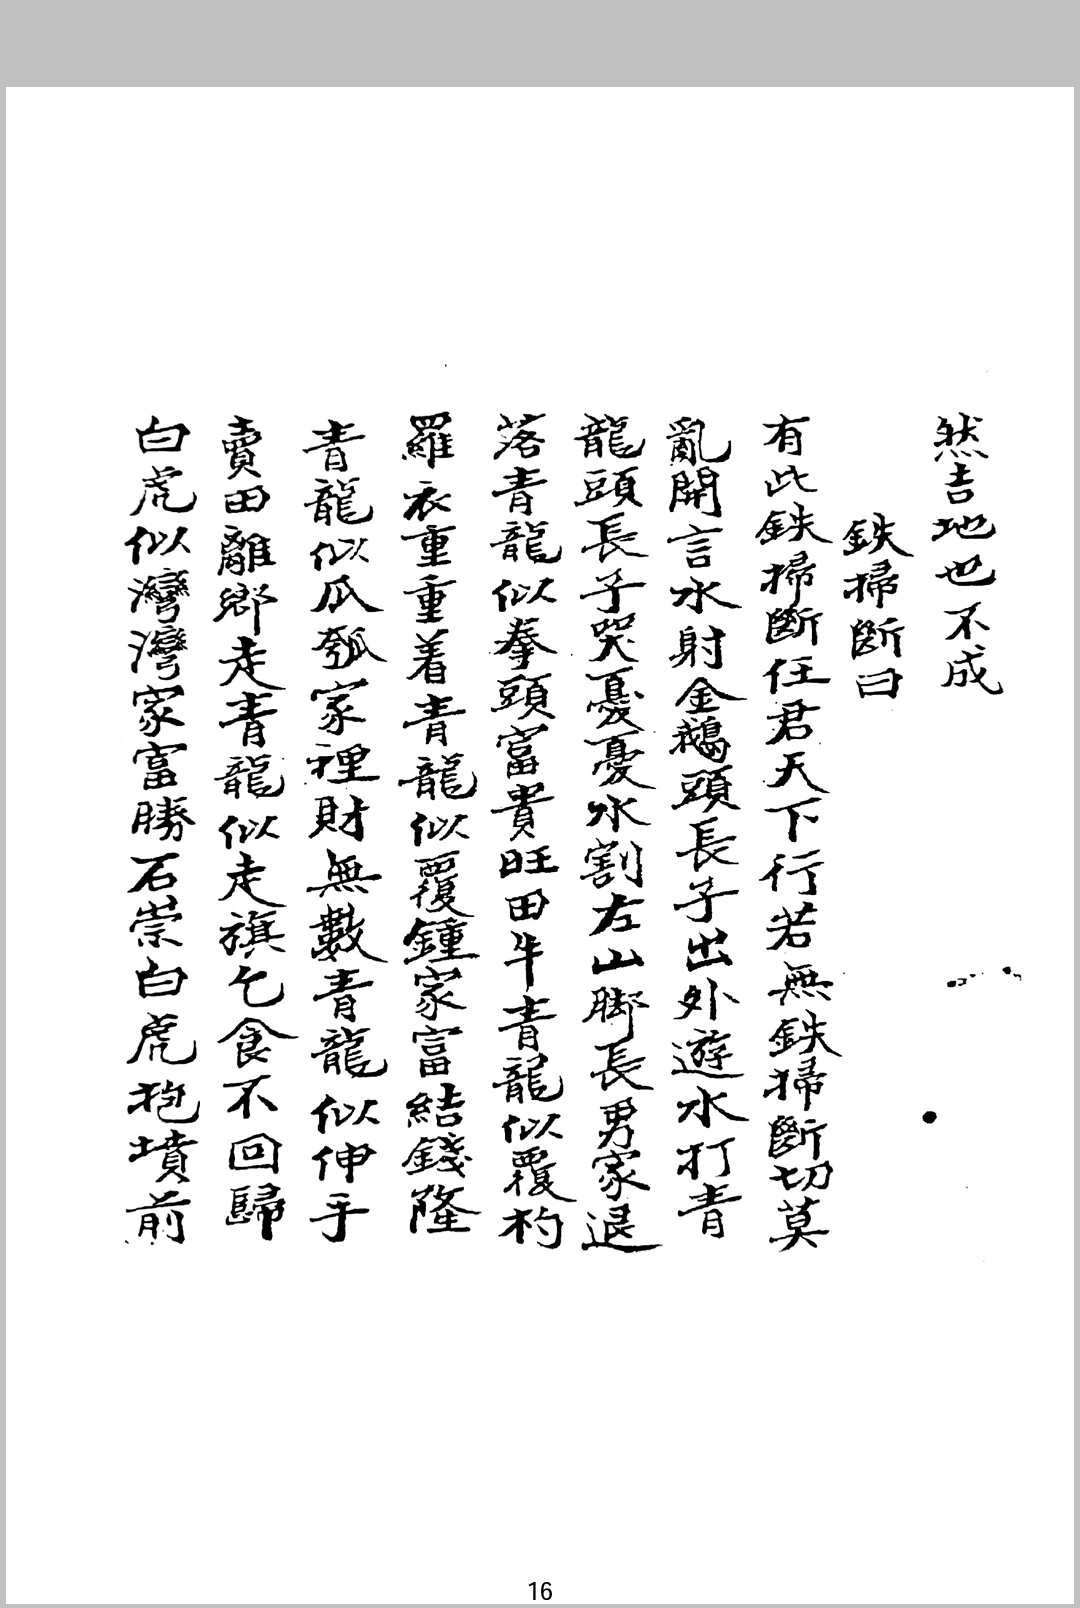 然吉地也不成
鉄掃断曰
有此鉄掃斷任君天下行若無鉄掃斷切莫
亂開言水射金鵝頭長子出外遊水打青
龍頭長子哭憂憂水割左山脚長男家退
落青龍似拳頭富貴旺田牛青龍似覆杓
羅衣重重着青龍似覆鍾家富結錢隆
青龍似瓜瓠家裡財無數青龍似伸手
賣田離鄉走青龍似走旗乞食不回歸
白虎似灣灣家富勝石崇白虎抱墳前
16